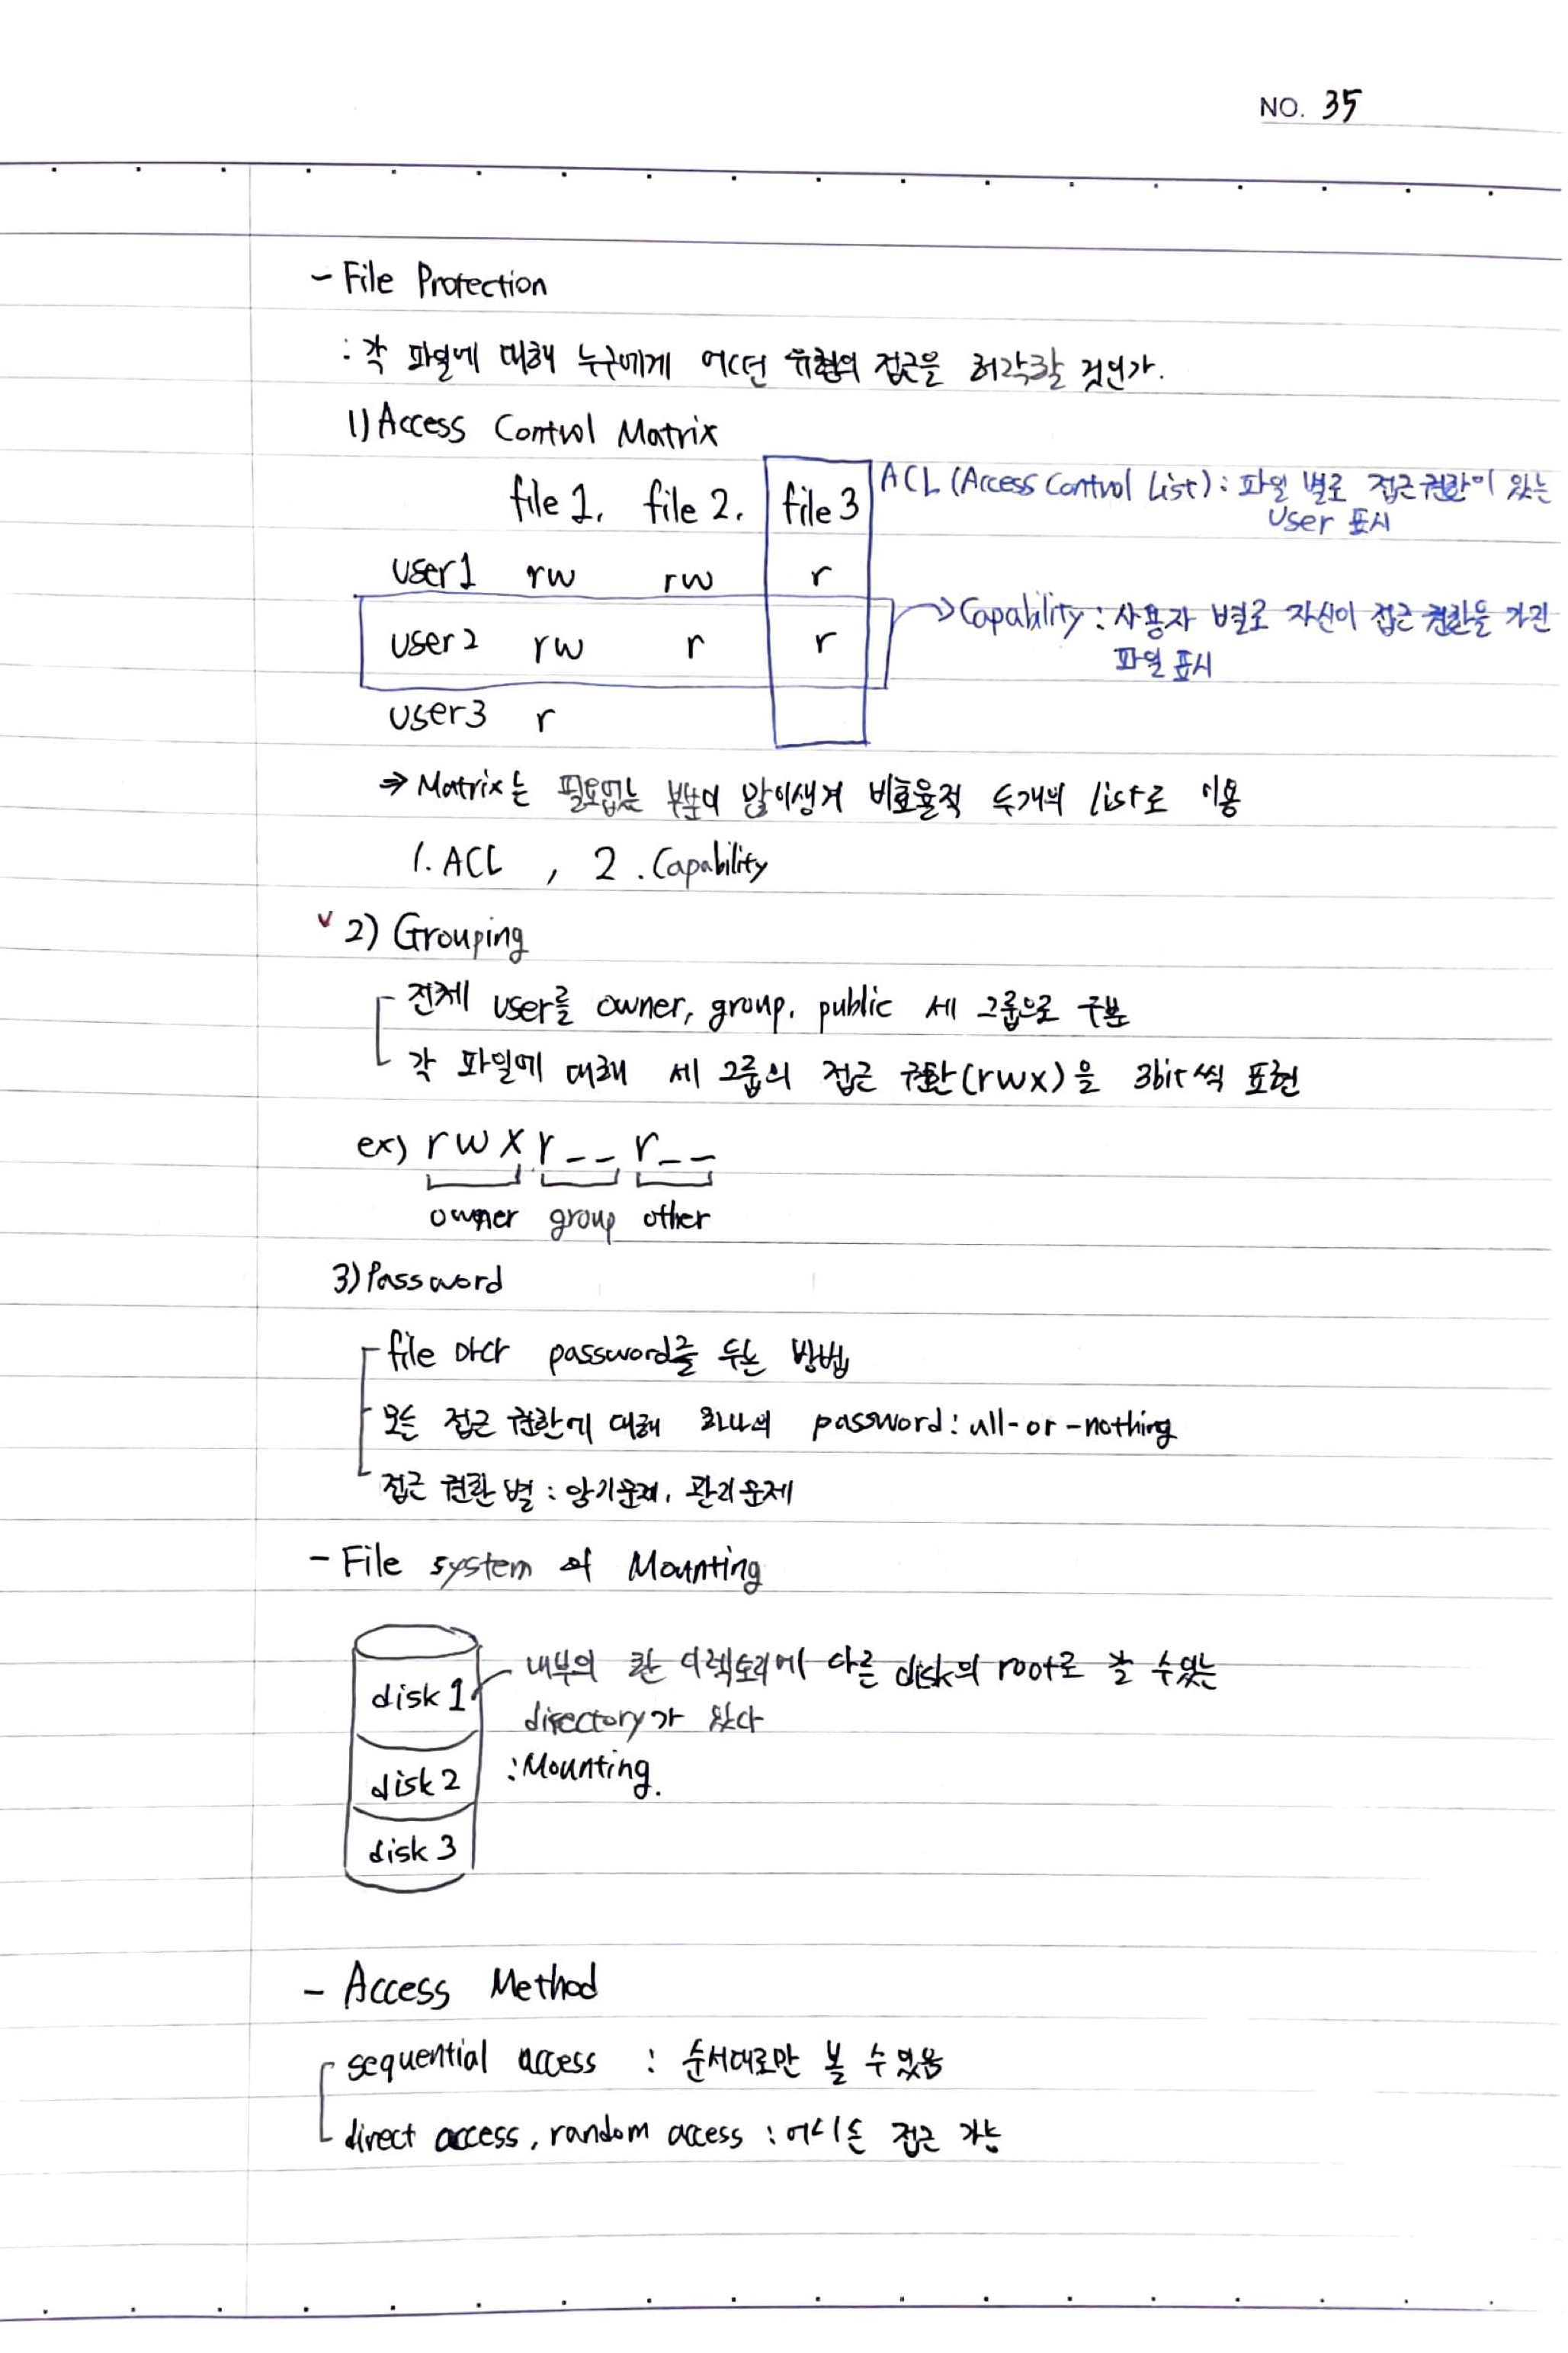 NO. 35
- File Protection
: 각 파일에 대해 누구에게 어떤 유형의 접근을 허락할 것인가.
1) Access Control Matrix
file 1. file 2. file 3
ACL (Access Control List) : 파일 별로 접근 권한이 있는
User 표시
user 1 rw rw r
user 2 rw r r
→ Capability : 사용자 별로 자신이 접근 권한을 가진
파일 표시
user 3 r
⇒ Matrix는 필요없는 부분이 많이생겨 비효율적 두개의 list로 이용
1. ACL , 2. Capability
v 2) Grouping
전체 user를 owner, group, public 세 그룹으로 구분
각 파일에 대해 세 그룹의 접근 권한(rwx)을 3bit씩 표현
ex) rwx r_ _ r_ _
owner group other
3) Password
file 마다 password를 두는 방법
모든 접근 권한에 대해 하나의 password : all-or-nothing
접근 권한 별 : 암기문제, 관리문제
- File system의 Mounting
disk 1
내부의 한 디렉토리에 다른 disk의 root로 갈 수있는
directory가 있다
disk 2
: Mounting.
disk 3
- Access Method
sequential access : 순서대로만 볼 수 있음
direct access, random access : 어디든 접근 가능